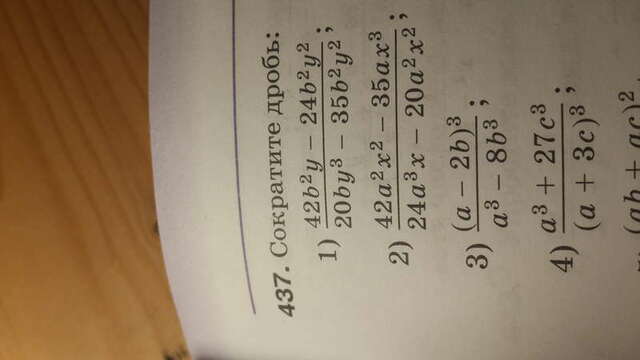 437. Сократите дробь:
1) (42b²y − 24b²y²)/(20by³ − 35b²y²);
2) (42a²x² − 35ax³)/(24a³x − 20a²x²);
3) (a − 2b)³/(a³ − 8b³);
4) (a³ + 27c³)/(a + 3c)³;
(ab + ac)²